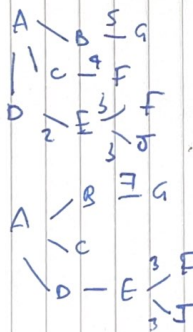 A
B 5 G
C 4 F
D
2 E 3 F
3 J
B 7 G
A
C
D E 3 F
3 J